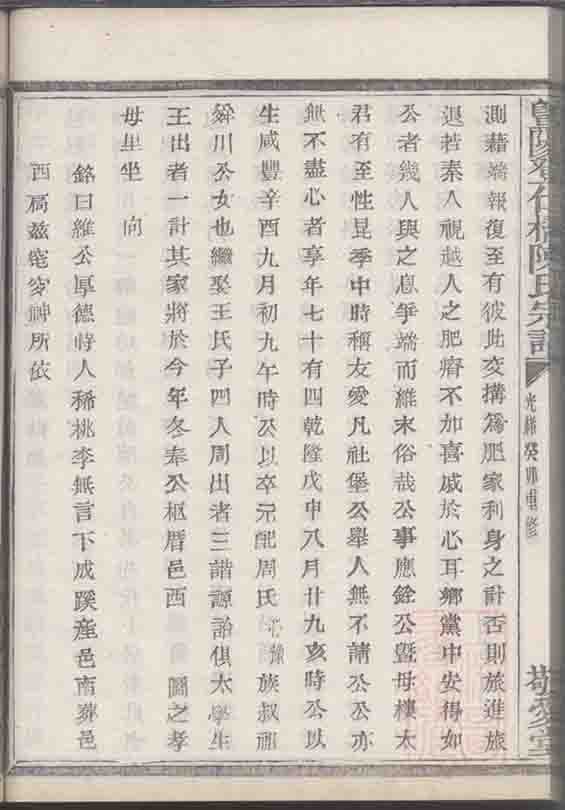 測藉端報復至有彼此交搆爲肥家利身之計否則旅進旅
退若秦人視越人之肥瘠不加喜戚於心耳鄉黨中安得如
公者幾人與之息爭端而維末俗哉公事應銓公暨母樓太
君有至性昆季中時稱友愛凡社堡公舉人無不請公公亦
無不盡心者享年七十有四乾隆戊申八月廿九亥時公以
生咸豐辛酉九月初九午時公以卒元配周氏 族叔祖
舜川公女也繼娶王氏子四人周出者三諧源詒俱太學生
王出者一計其家將於今年冬奉公柩厝邑西 圖之孝
母里坐 向
銘曰維公厚德時人稀桃李無言下成蹊產邑南葬邑
西高茲窀穸神所依
暨陽 石橋陳氏宗譜
光緒癸卯重修
敬愛堂